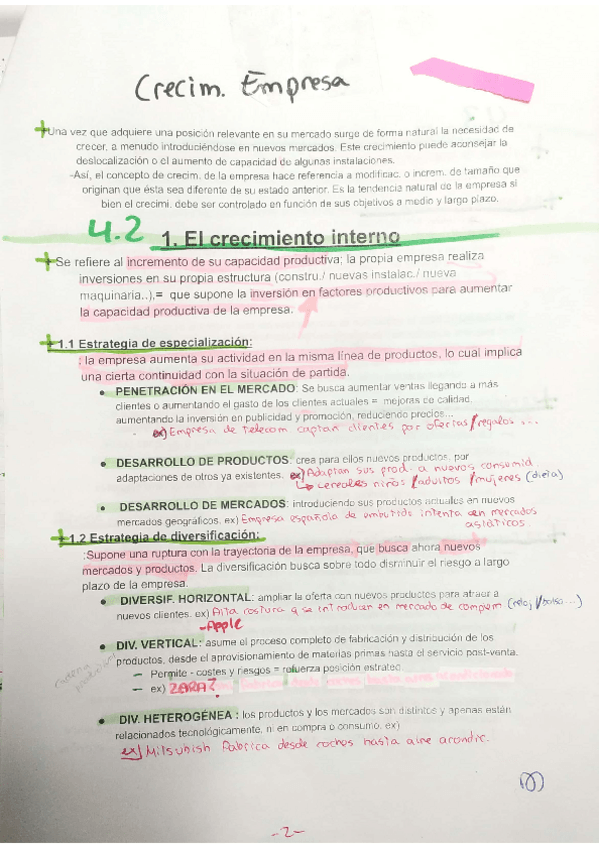 Crecim. Empresa
Una vez que adquiere una posición relevante en su mercado surge de forma natural la necesidad de
crecer, a menudo introduciéndose en nuevos mercados. Este crecimiento puede aconsejar la
deslocalización o el aumento de capacidad de algunas instalaciones.
-Así, el concepto de crecim. de la empresa hace referencia a modificac. o increm. de tamaño que
originan que ésta sea diferente de su estado anterior. Es la tendencia natural de la empresa si
bien el crecimi. debe ser controlado en función de sus objetivos a medio y largo plazo.
4.2 1. El crecimiento interno
Se refiere al incremento de su capacidad productiva; la propia empresa realiza
inversiones en su propia estructura (constru./ nuevas instalac./ nueva
maquinaria..),= que supone la inversión en factores productivos para aumentar
la capacidad productiva de la empresa.
1.1 Estrategia de especialización:
: la empresa aumenta su actividad en la misma línea de productos, lo cual implica
una cierta continuidad con la situación de partida.
• PENETRACIÓN EN EL MERCADO: Se busca aumentar ventas llegando a más
clientes o aumentando el gasto de los clientes actuales = mejoras de calidad,
aumentando la inversión en publicidad y promoción, reduciendo precios...
ex) Empresa de telecom captan clientes por ofertas/regalos ...
• DESARROLLO DE PRODUCTOS: crea para ellos nuevos productos, por
adaptaciones de otros ya existentes. ex) Adaptan sus prod. a nuevos consumid.
↳ cereales niños /adultos /mujeres (dieta)
• DESARROLLO DE MERCADOS: introduciendo sus productos actuales en nuevos
mercados geográficos. ex) Empresa española de embutido intenta en mercados
asiáticos
1.2 Estrategia de diversificación:
:Supone una ruptura con la trayectoria de la empresa, que busca ahora nuevos
mercados y productos. La diversificación busca sobre todo disminuir el riesgo a largo
plazo de la empresa.
• DIVERSIF. HORIZONTAL: ampliar la oferta con nuevos productos para atraer a
nuevos clientes. ex) Alta costura q se introducen en mercado de (reloj/bolso...)
-Apple
• DIV. VERTICAL: asume el proceso completo de fabricación y distribución de los
productos, desde el aprovisionamiento de materias primas hasta el servicio post-venta.
– Permite - costes y riesgos = refuerza posición estrateg.
– ex) ZARA?
• DIV. HETEROGÉNEA : los productos y los mercados son distintos y apenas están
relacionados tecnológicamente, ni en compra o consumo. ex)
ex) Mitsubish fabrica desde coches hasta aire acondic.
-2-